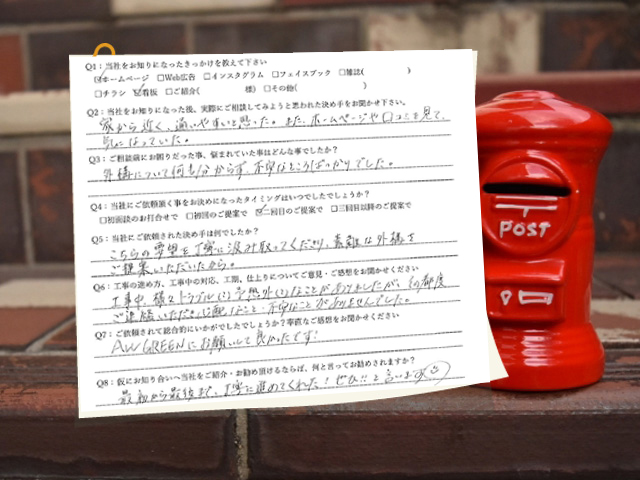 Q1：当社をお知りになったきっかけを教えて下さい
☑ホームページ □Web広告 □インスタグラム □フェイスブック □雑誌( )
□チラシ ☑看板 □ご紹介( 様) □その他( )
Q2：当社をお知りになった後、実際にご相談してみようと思われた決め手をお聞かせ下さい。
家から近く、通いやすいと思った。また、ホームページや口コミを見て、
気になっていた。
Q3：ご相談前にお困りだった事、悩まれていた事はどんな事でしたか？
外構について何も分からず、不安なところばっかりでした。
Q4：当社にご依頼頂く事をお決めになったタイミングはいつでしたでしょうか？
□初面談のお打合せで □初回のご提案で ☑二回目のご提案で □三回目以降のご提案で
Q5：当社にご依頼された決め手は何でしたか？
こちらの要望を丁寧に汲み取ってくださり、素敵な外構を
ご提案いただいたから。
Q6：工事の進め方、工事中の対応、工期、仕上りについてご意見・ご感想をお聞かせください
工事中、様々トラブル(?)予想外(?)なことがありましたが、その都度
ご連絡いただき、心配なこと・不安なことがありませんでした。
Q7：ご依頼されて総合的にいかがでしたでしょうか？率直なご感想をお聞かせください
AW GREENにお願いして良かったです！
Q8：仮にお知り合いへ当社をご紹介・お勧め頂けるならば、何と言ってお勧めされますか？
最初から最後まで、丁寧に進めてくれた！ぜひ!!と言います
POST